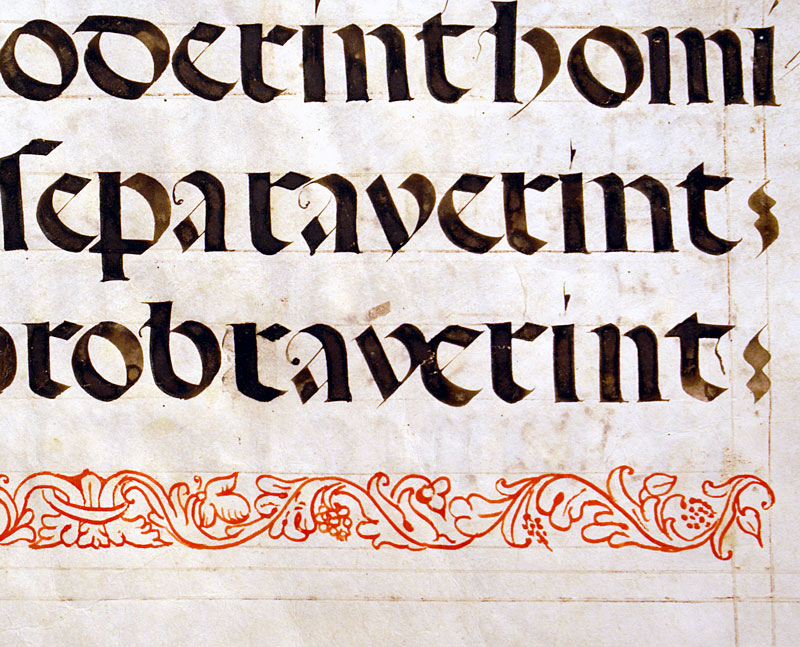 oderint homi
ſeparaverint:
probraverint: